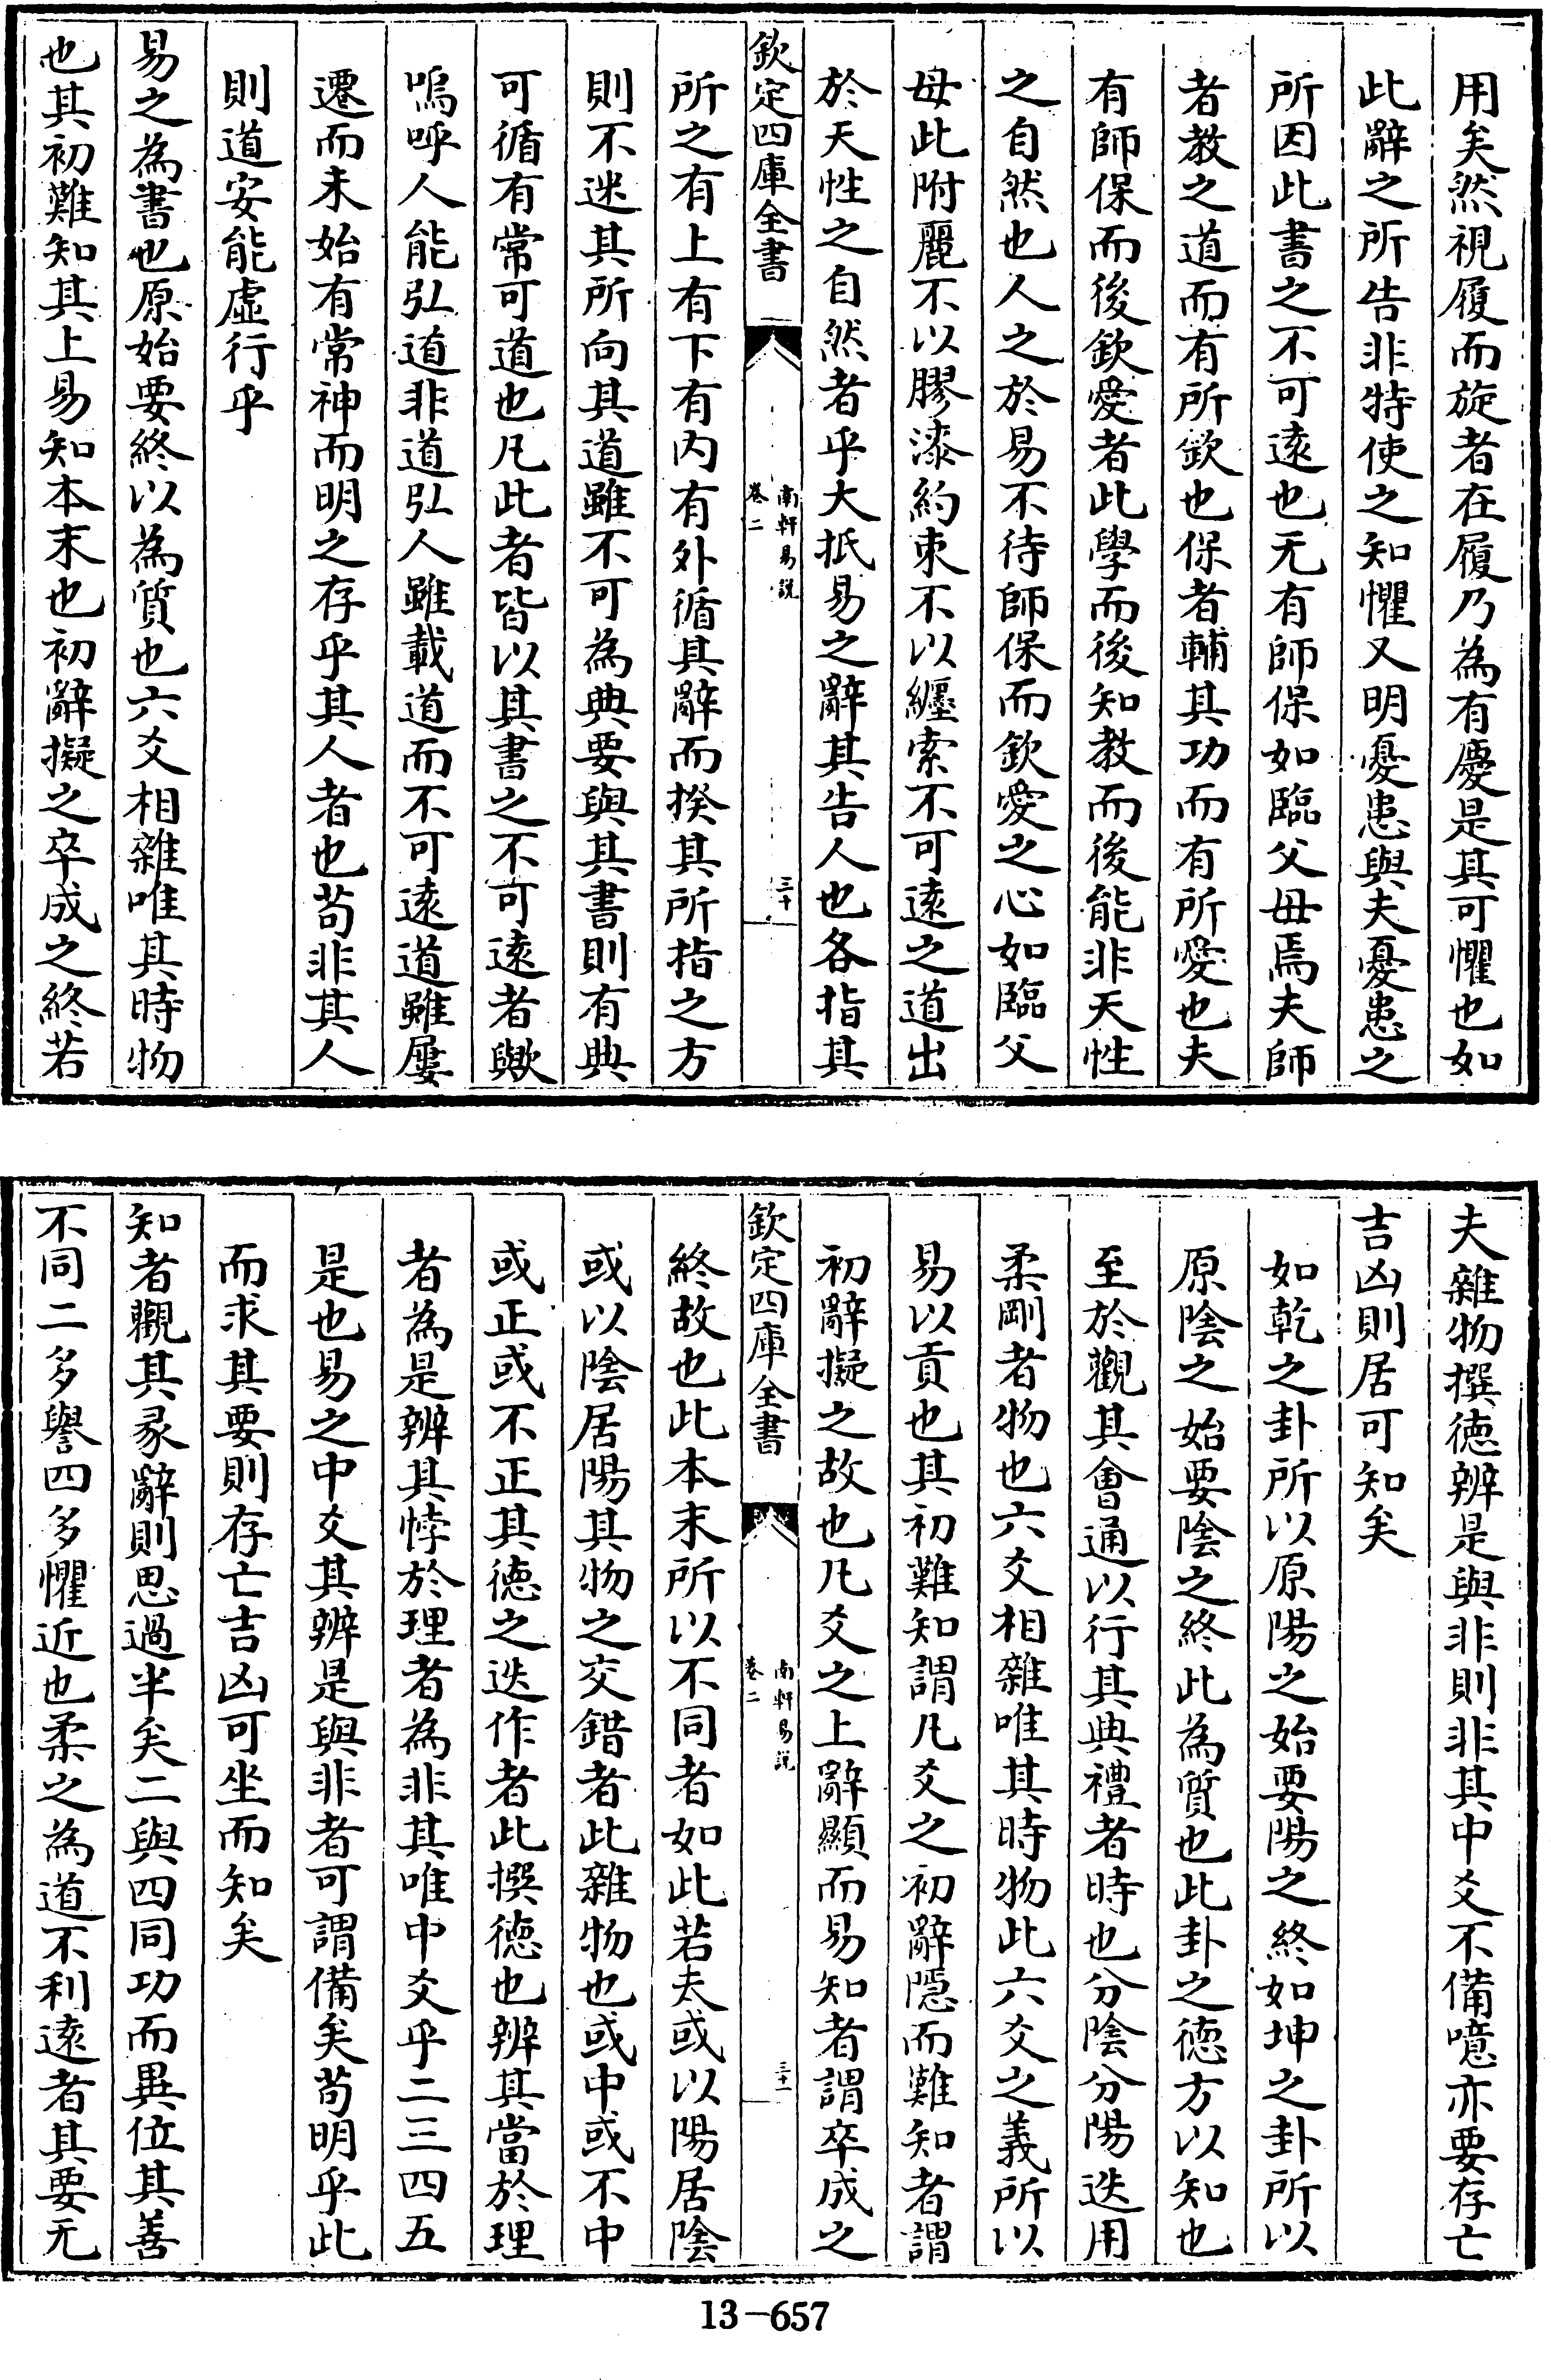 用矣然視履而旋者在履乃為有慶是其可懼也如
此辭之所告非特使之知懼又明憂患與夫憂患之
所因此書之不可遠也无有師保如臨父母焉夫師
者教之道而有所欽也保者輔其功而有所愛也夫
有師保而後欽愛者此學而後知教而後能非天性
之自然也人之於易不待師保而欽愛之心如臨父
母此附麗不以膠漆約束不以纏索不可遠之道出
於天性之自然者乎大抵易之辭其告人也各指其
欽定四庫全書
南軒易說
卷二
三十
所之有上有下有內有外循其辭而揆其所指之方
則不迷其所向其道雖不可為典要與其書則有典
可循有常可道也凡此者皆以其書之不可遠者歟
嗚呼人能弘道非道弘人雖載道而不可遠道雖屢
遷而未始有常神而明之存乎其人者也苟非其人
則道安能虛行乎
易之為書也原始要終以為質也六爻相雜唯其時物
也其初難知其上易知本末也初辭擬之卒成之終若
夫雜物撰德辨是與非則非其中爻不備噫亦要存亡
吉凶則居可知矣
如乾之卦所以原陽之始要陽之終如坤之卦所以
原陰之始要陰之終此為質也此卦之德方以知也
至於觀其會通以行其典禮者時也分陰分陽迭用
柔剛者物也六爻相雜唯其時物此六爻之義所以
易以貢也其初難知謂凡爻之初辭隱而難知者謂
初辭擬之故也凡爻之上辭顯而易知者謂卒成之
欽定四庫全書
南軒易說
卷二
三十一
終故也此本末所以不同者如此若夫或以陽居陰
或以陰居陽其物之交錯者此雜物也或中或不中
或正或不正其德之迭作者此撰德也辨其當於理
者為是辨其悖於理者為非其唯中爻乎二三四五
是也易之中爻其辨是與非者可謂備矣苟明乎此
而求其要則存亡吉凶可坐而知矣
知者觀其彖辭則思過半矣二與四同功而異位其善
不同二多譽四多懼近也柔之為道不利遠者其要无
13-657